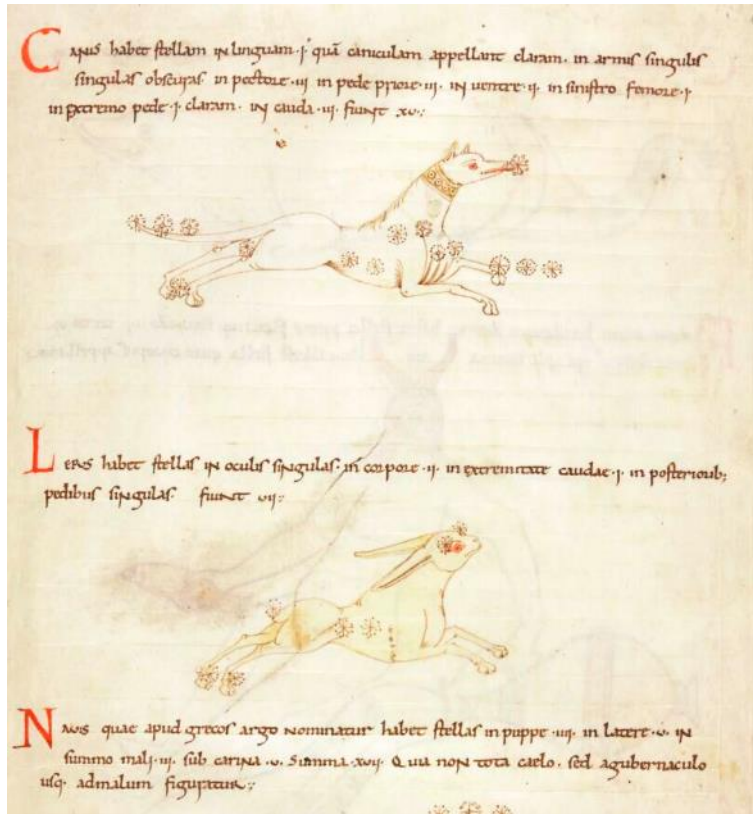 CANIS habet stellam in linguam ·i· quā caniculam appellant claram. in armis singulis
singulas obscuras in pectore ·iii· in pede priore ·iii· in ventre ·ii· in sinistro femore ·i·
in extremo pede ·i· claram. in cauda ·iii· fiunt xv:
LEPUS habet stellas in oculis singulas. in corpore ·ii· in extremitate caudae ·i· in posteriorib;
pedibus singulas fiunt vii:
NAVIS quae apud grecos argo nominatur habet stellas in puppe ·iiii· in latere ·v· in
summo mali ·iii· sub carina ·v· Summa ·xvii· Quia non tota caelo. sed agubernaculo
usq· admalum figuratur: